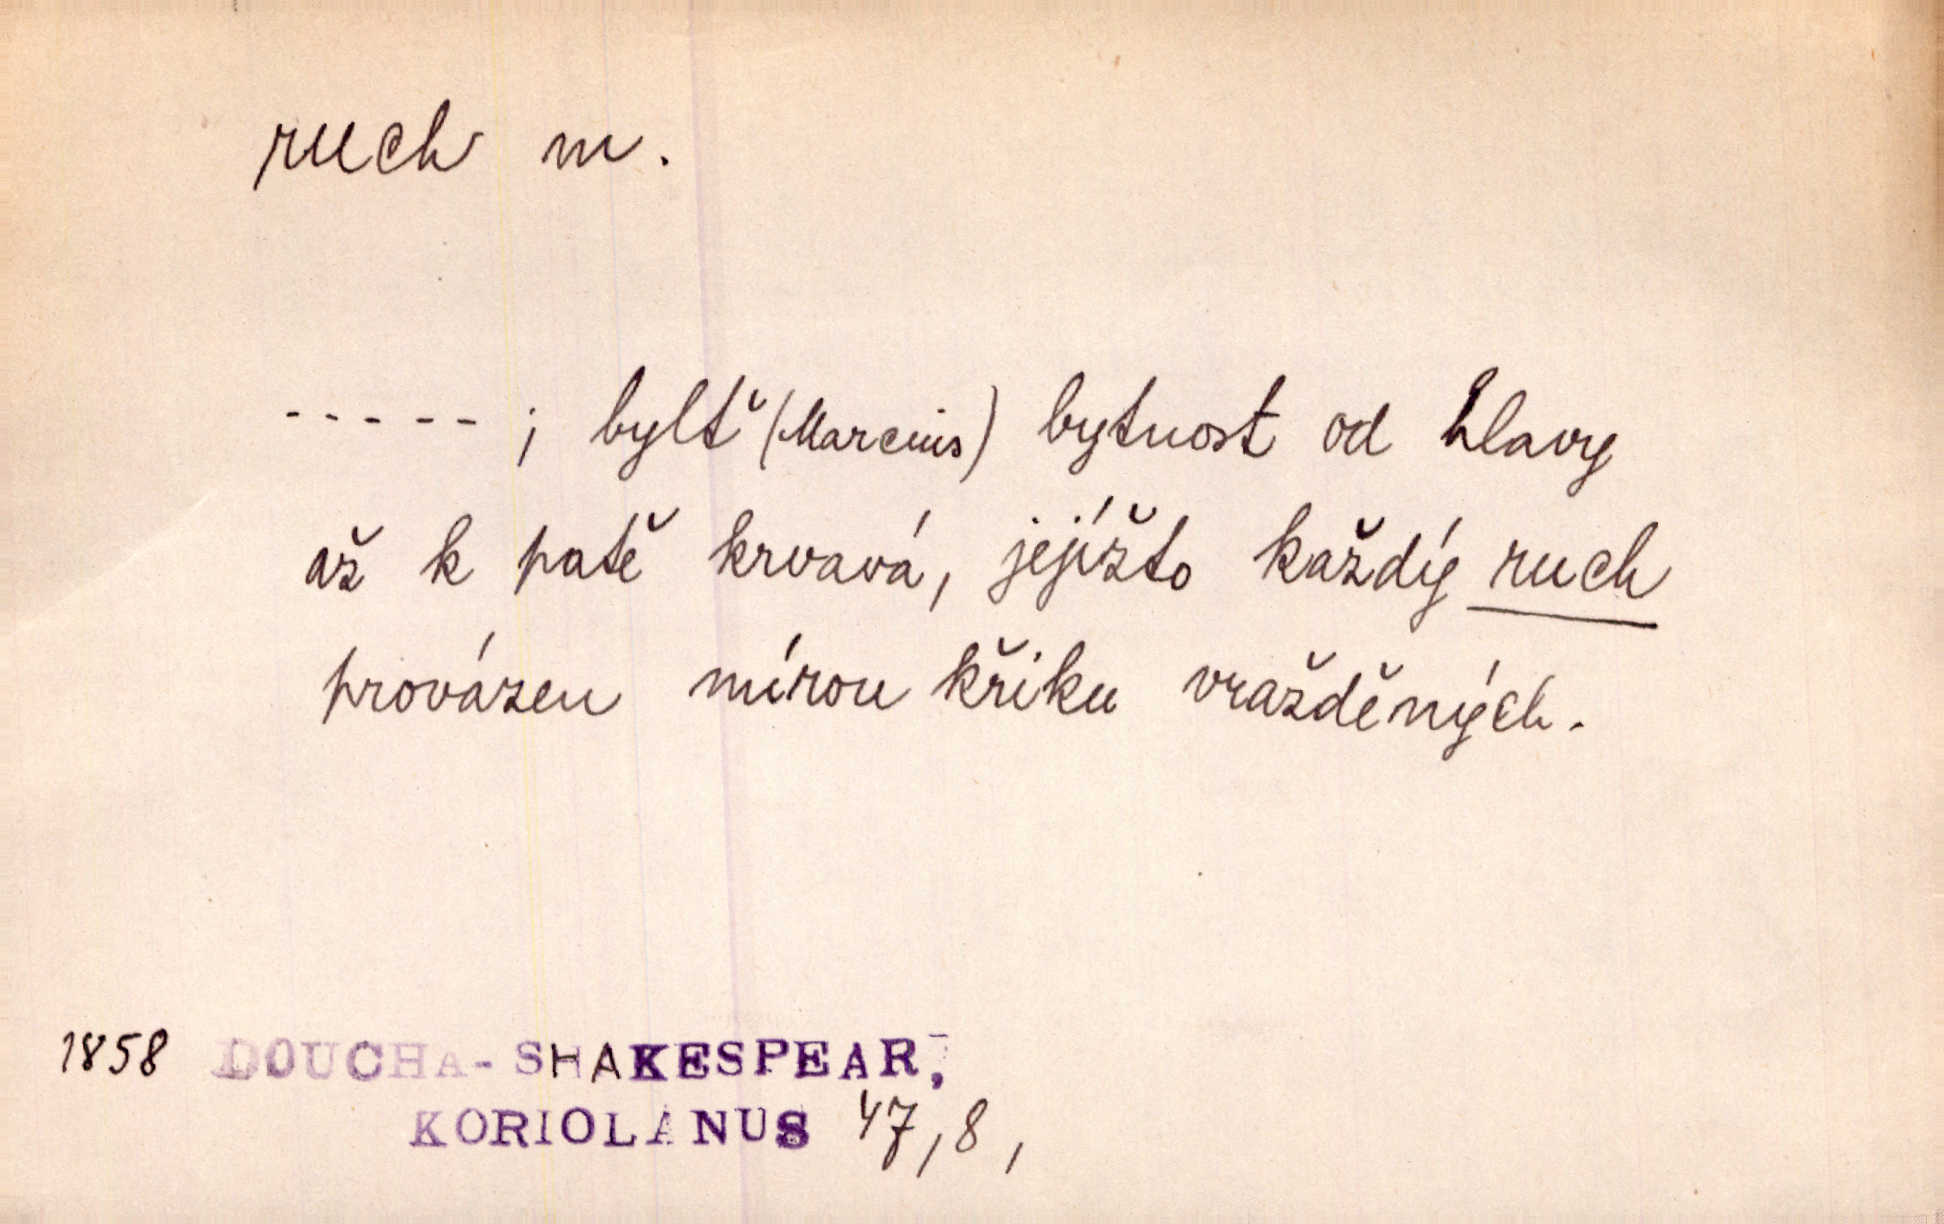 ruch m.
- - - - - ; bylť (Marcius) bytnost od hlavy
až k patě krvavá, jejížto každý ruch
provázen mírou křiku vražděných.
1858 DOUCHA-SHAKESPEAR,
KORIOLANUS 47,8,